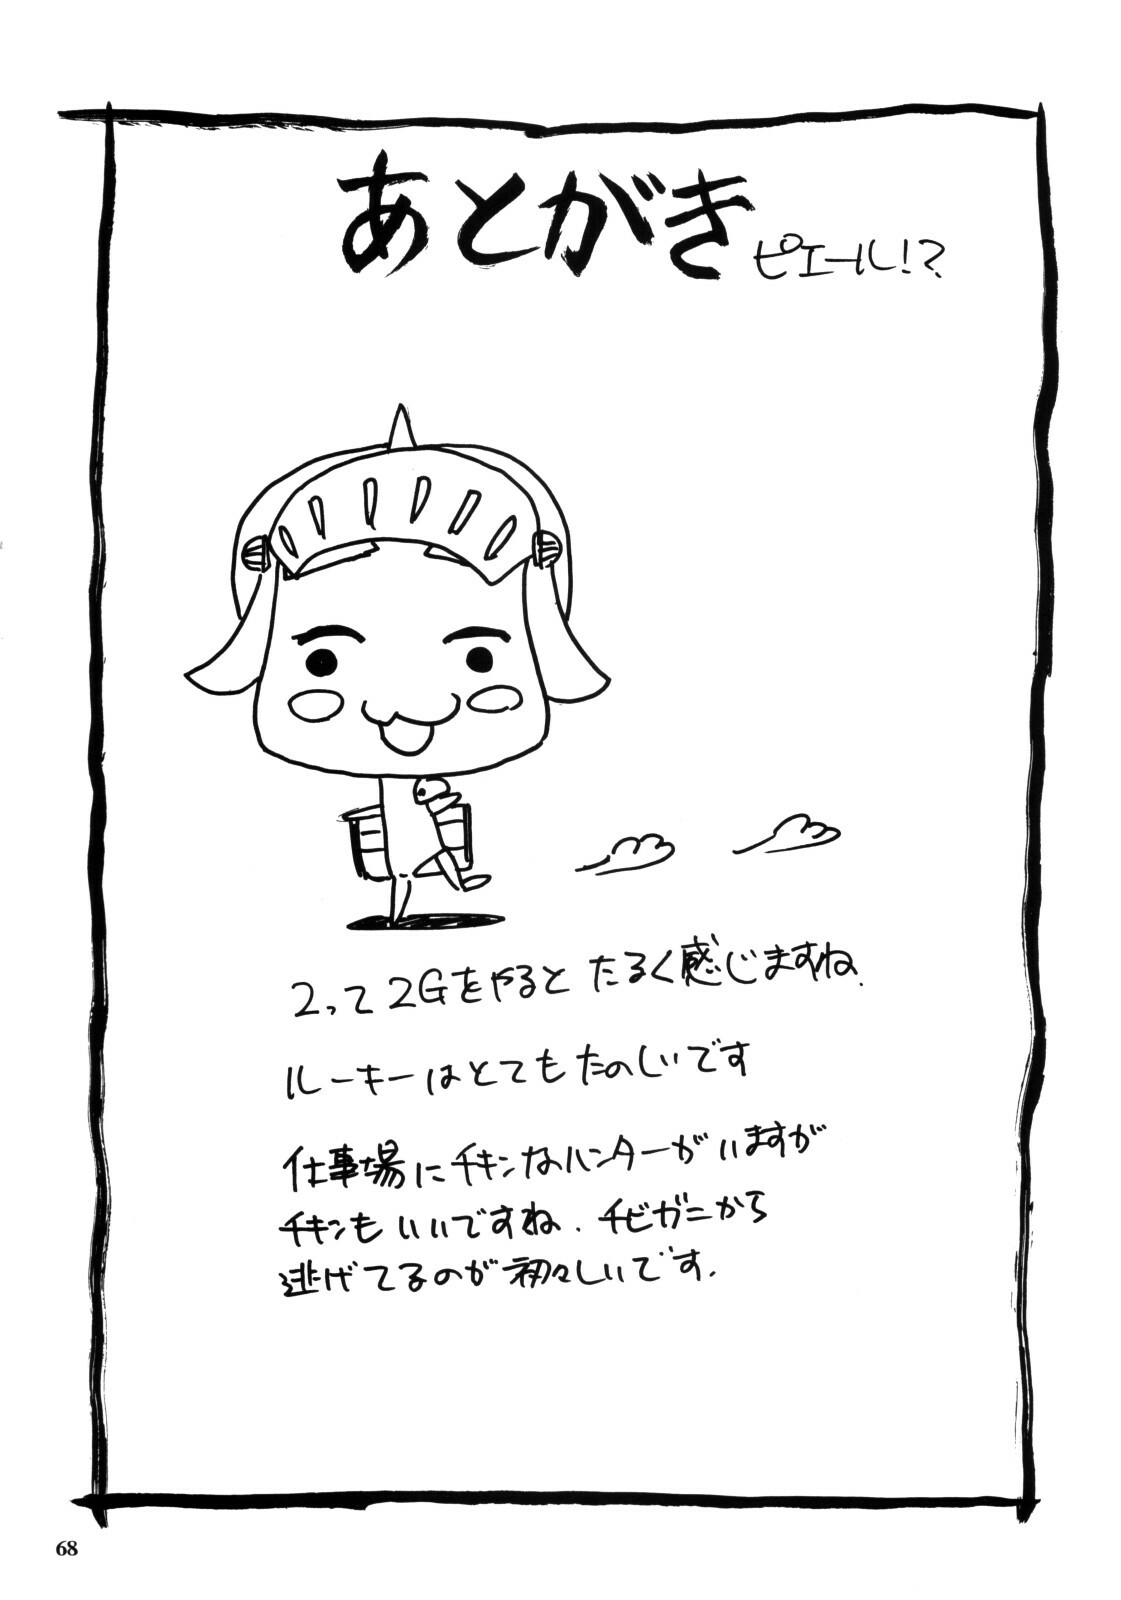 あとがき ピエール!?
2って2Gをやるとたるく感じますね.
ルーキーはとてもたのしいです
仕事場にチキンなハンターがいますが
チキンもいいですね. チビガニから
逃げてるのが初々しいです.
68